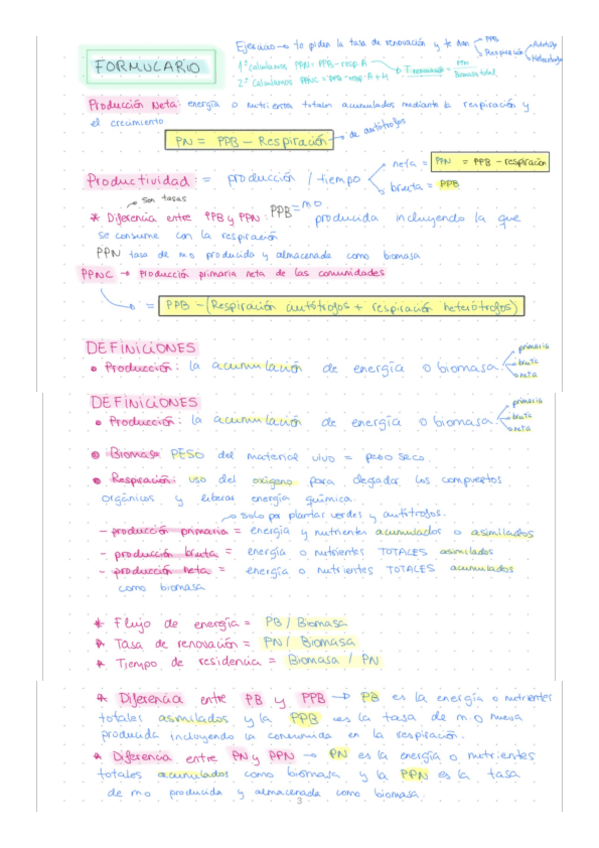 FORMULARIO
Ejercicio → te piden la tasa de renovación y te dan → PPB
→ Respiración → Autótrofos
→ Heterótrofos
1º calculamos PPN = PPB - resp. A
2º calculamos PPNC = PPB - resp. A + H → T renovación = PPN / Biomasa total
Producción Neta: energía o nutrientes totales acumulados mediante la respiración y
el crecimiento
PN = PPB - Respiración → de autótrofos
Productividad: = producción / tiempo
neta = PPN = PPB - respiración
bruta = PPB
→ son tasas
* Diferencia entre PPB y PPN: PPB = mo producida incluyendo la que
se consume con la respiración
PPN tasa de mo producida y almacenada como biomasa
PPNC → Producción primaria neta de las comunidades
→ = PPB - (Respiración autótrofos + respiración heterótrofos)
DEFINICIONES
• Producción: la acumulación de energía o biomasa
→ primaria
→ bruta
→ neta
DEFINICIONES
• Producción: la acumulación de energía o biomasa
→ primaria
→ bruta
→ neta
• Biomasa: PESO del material vivo = peso seco.
• Respiración: uso del oxígeno para degradar los compuestos
orgánicos y liberar energía química.
→ solo por plantas verdes y autótrofos.
- producción primaria = energía y nutrientes acumulados o asimilados
- producción bruta = energía o nutrientes TOTALES asimilados
- producción neta = energía o nutrientes TOTALES acumulados
como biomasa
* Flujo de energía = PB / Biomasa
* Tasa de renovación = PN / Biomasa
* Tiempo de residencia = Biomasa / PN
* Diferencia entre PB y PPB → PB es la energía o nutrientes
totales asimilados y la PPB es la tasa de m.o nueva
producida incluyendo la consumida en la respiración.
* Diferencia entre PN y PPN → PN es la energía o nutrientes
totales acumulados como biomasa y la PPN es la tasa
de mo producida y almacenada como biomasa.
3